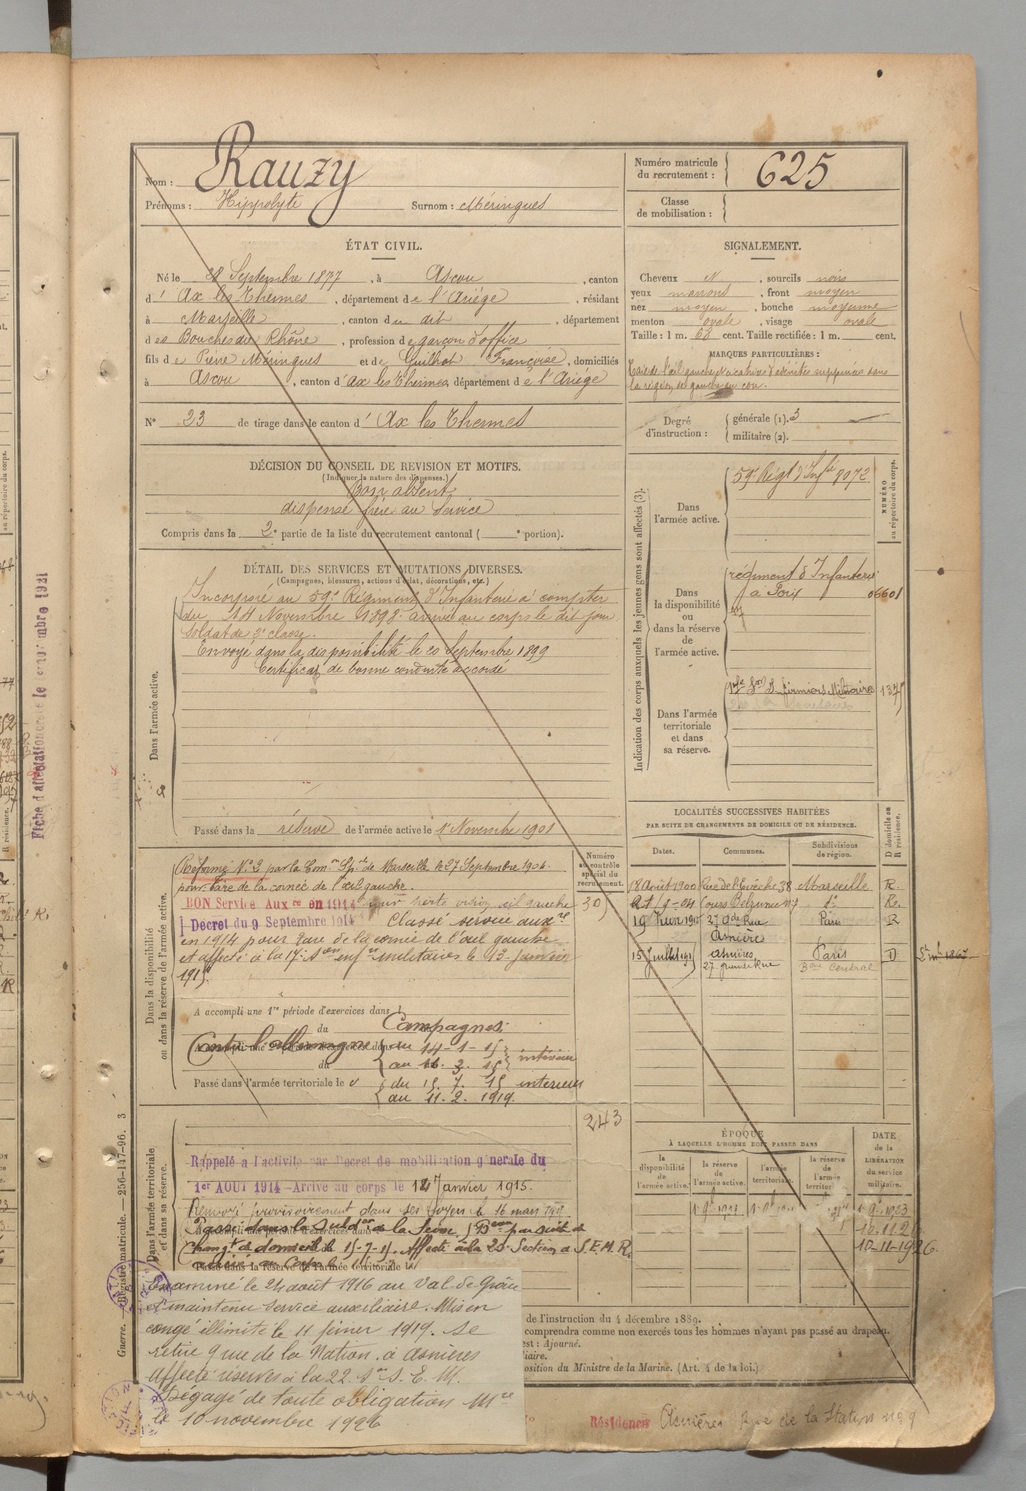 Nom : Rauzy
Prénoms : Hippolyte Surnom : Méringues
Numéro matricule du recrutement : 625
Classe de mobilisation :
ÉTAT CIVIL.
Né le 28 Septembre 1877, à Ascou, canton
d' Ax les Thermes, département de l'Ariège, résidant
à Marseille, canton du dit, département
des Bouches du Rhône, profession de garçon d'office
fils de Pierre Méringues et de Guilhot Françoise, domiciliés
à Ascou, canton d'Ax les Thermes, département de l'Ariège
N° 23 de tirage dans le canton d' Ax les Thermes
SIGNALEMENT.
Cheveux N, sourcils noirs
yeux marrons, front moyen
nez moyen, bouche moyenne
menton ovale, visage ovale
Taille : 1 m. 68 cent. Taille rectifiée : 1 m. cent.
MARQUES PARTICULIÈRES :
Taie de l'œil gauche et
la région gauche du cou.
Degré d'instruction : générale (1). 3
militaire (2).
DÉCISION DU CONSEIL DE REVISION ET MOTIFS.
(Indiquer la nature des dispenses.)
Bon absent
dispensé frère au service
Compris dans la 2e partie de la liste du recrutement cantonal ( e portion).
DÉTAIL DES SERVICES ET MUTATIONS DIVERSES.
(Campagnes, blessures, actions d'éclat, décorations, etc.)
Dans l'armée active.
Incorporé au 59e Régiment d'Infanterie à compter
du 14 Novembre 1898 arrivé au corps le dit jour
Soldat de 2e classe.
Envoyé dans la disponibilité le 20 Septembre 1899
Certificat de bonne conduite accordé
Passé dans la réserve de l'armée active le 1 Novembre 1901
Indication des corps auxquels les jeunes gens sont affectés (3).
NUMÉRO au répertoire du corps.
Dans l'armée active.
59e Régt d'Infie 8072
Dans la disponibilité ou dans la réserve de l'armée active.
régiment d'Infanterie
à Foix 06601
Dans l'armée territoriale et dans sa réserve.
Infirmiers Militaires
LOCALITÉS SUCCESSIVES HABITÉES
PAR SUITE DE CHANGEMENTS DE DOMICILE OU DE RÉSIDENCE.
Dates. Communes. Subdivisions de région. D domicile ou R résidence.
18 Août 1900 Rue de l'Evêché 38 Marseille R.
Cours Belzunce 17 do R.
19 Juin 1905 27 Gde Rue Paris R
Asnière
15 Juillet Asnières Paris D
27 grande Rue Central
Dans la disponibilité ou dans la réserve de l'armée active.
Numéro au contrôle spécial du recrutement.
Réformé N° 2 par la Comon Sple de Marseille le 27 Septembre 1904
pour taie de la cornée de l'œil gauche.
BON Service Auxre en 1914 pour perte vision œil gauche 30
Décret du 9 Septembre 1914 Classé service auxre
en 1914 pour taie de la cornée de l'œil gauche
et affecté à la 17e Son infers militaires le 13 janvier
1915
A accompli une 1re période d'exercices dans
du Campagnes:
Contre l'allemagne du 14-1-15 intérieur
au 16. 3. 15
Passé dans l'armée territoriale le du 15. 7. 15 interieur
au 11. 2. 1919
243
Dans l'armée territoriale et dans sa réserve.
Rappelé à l'activité par Décret de mobilisation générale du
1er AOUT 1914 - Arrivé au corps le 14 janvier 1915.
Renvoyé provisoirement dans ses foyers le 16 mars 1915
Passé dans la Subdon de la Seine, par suite de
changt de domicile le 15-7-15. Affecté à la 20 Section de S.E.M.R.
Examiné le 24 août 1916 au Val de Grâce
et maintenu service auxiliaire. Mis en
congé illimité le 11 février 1919. Se
retire 9 rue de la Nation à Asnières
Affecté réserves à la 22e Son S. E. M.
Dégagé de toute obligation Mre
le 10 novembre 1926
ÉPOQUE
À LAQUELLE L'HOMME DOIT PASSER DANS
la disponibilité de l'armée active.
la réserve de l'armée active.
l'armée territoriale.
la réserve de l'armée territor
DATE de la LIBÉRATION du service militaire.
10-11-1926
de l'instruction du 4 décembre 1889.
comprendra comme non exercés tous les hommes n'ayant pas passé au drapeau.
est : Ajourné.
liaire.
osition du Ministre de la Marine. (Art. 4 de la loi.)
Guerre. — Registre matricule. — 256-147-96. 3
Résidence Asnières Rue de la Station